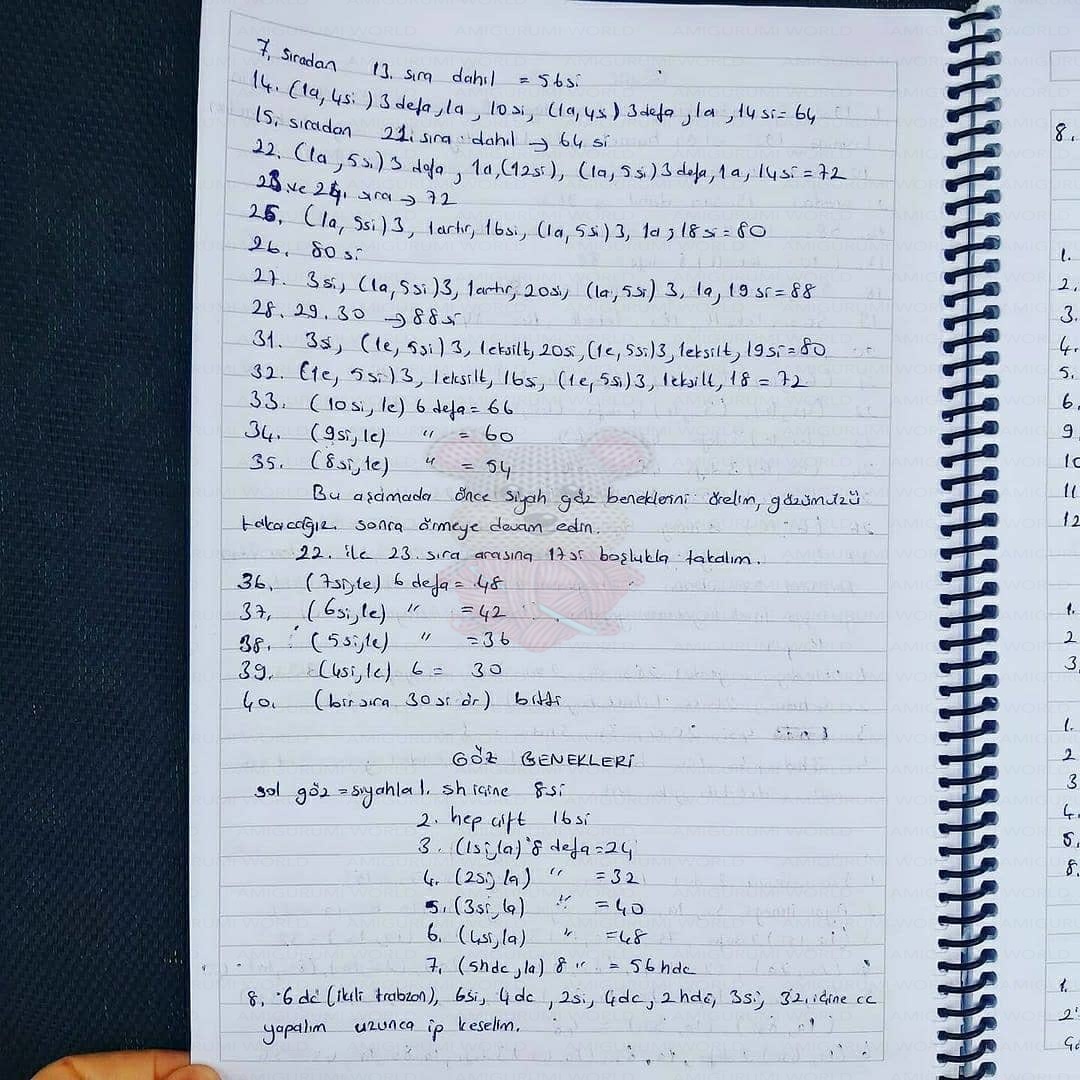 7. sıradan 13. sıra dahil = 56si
14. (1a, 4si) 3 defa, 1a, 10si, (1a, 4si) 3 defa, 1a, 14si = 64
15. sıradan 21. sıra dahil → 64 si
22. (1a, 5si) 3 defa, 1a, (12si), (1a, 5si) 3 defa, 1a, 14si = 72
23 ve 24. sıra → 72
25. (1a, 5si) 3, 1artır, 16si, (1a, 5si) 3, 1a, 18si = 80
26. 80 si
27. 3si, (1a, 5si) 3, 1artır, 20si, (1a, 5si) 3, 1a, 19 si = 88
28. 29. 30 → 88si
31. 3si, (1e, 5si) 3, 1eksilt, 20si, (1e, 5si) 3, 1eksilt, 19si = 80
32. (1e, 5si) 3, 1eksilt, 16s, (1e, 5si) 3, 1eksilt, 18 = 72
33. (10si, 1e) 6 defa = 66
34. (9si, 1e) " = 60
35. (8si, 1e) " = 54
Bu aşamada önce siyah göz beneklerini örelim, gözümüzü
takacağız. sonra örmeye devam edin.
22. ile 23. sıra arasına 17si boşlukla takalım.
36. (7si, 1e) 6 defa = 48
37. (6si, 1e) " = 42
38. (5si, 1e) " = 36
39. (4si, 1e) 6 = 30
40. (bir sıra 30 si ör) bitti
GÖZ BENEKLERİ
sol göz = siyahla 1. sh içine 8si
2. hep çift 16si
3. (1si, 1a) 8 defa = 24
4. (2si, 1a) " = 32
5. (3si, 1a) " = 40
6. (4si, 1a) " = 48
7. (5hdc, 1a) 8 " = 56 hdc
8. 6 dc (ikili trabzon), 6si, 4dc, 2si, 4dc, 2hdc, 3si, 32. içine cc
yapalım uzunca ip keselim.
8.
1.
2.
3.
4.
5.
6.
9
10
11
12
1.
2
3.
1.
2
3
4.
5.
8.
1.
2
AMIGURUMI WORLD